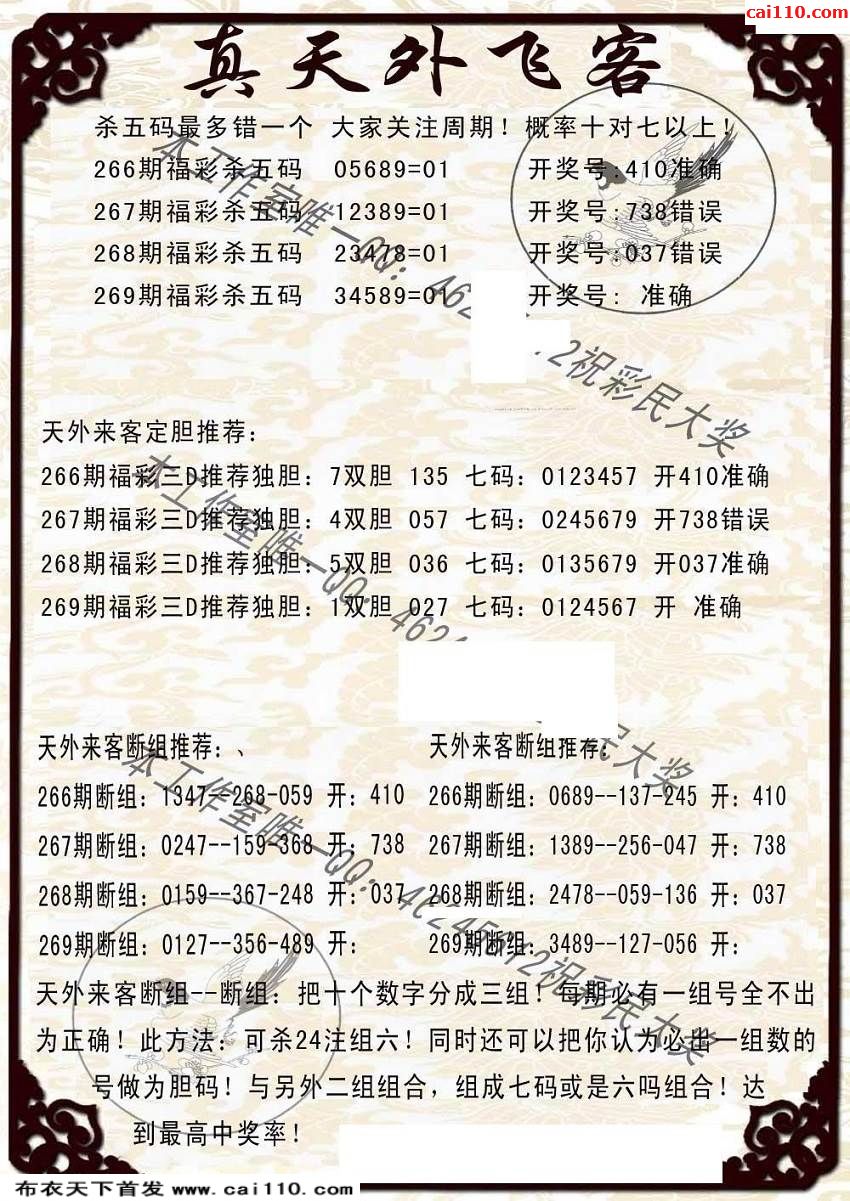 cai110.com
真天外飞客
杀五码最多错一个 大家关注周期！概率十对七以上！
266期福彩杀五码 05689=01 开奖号:410准确
267期福彩杀五码 12389=01 开奖号:738错误
268期福彩杀五码 23478=01 开奖号:037错误
269期福彩杀五码 34589=01 开奖号: 准确
天外来客定胆推荐：
266期福彩三D推荐独胆：7双胆 135 七码：0123457 开410准确
267期福彩三D推荐独胆：4双胆 057 七码：0245679 开738错误
268期福彩三D推荐独胆：5双胆 036 七码：0135679 开037准确
269期福彩三D推荐独胆：1双胆 027 七码：0124567 开 准确
天外来客断组推荐：、
266期断组：1347--268-059 开：410
267期断组：0247--159-368 开：738
268期断组：0159--367-248 开：037
269期断组：0127--356-489 开：
天外来客断组推荐：
266期断组：0689--137-245 开：410
267期断组：1389--256-047 开：738
268期断组：2478--059-136 开：037
269期断组：3489--127-056 开：
天外来客断组--断组：把十个数字分成三组！每期必有一组号全不出
为正确！此方法：可杀24注组六！同时还可以把你认为必出一组数的
号做为胆码！与另外二组组合，组成七码或是六吗组合！达
到最高中奖率！
本工作室唯一QQ：462 2祝彩民大奖
本工作室唯一QQ：462 民大奖
本工作室唯一QQ：46245612祝彩民大奖
布衣天下首发 www.cai110.com